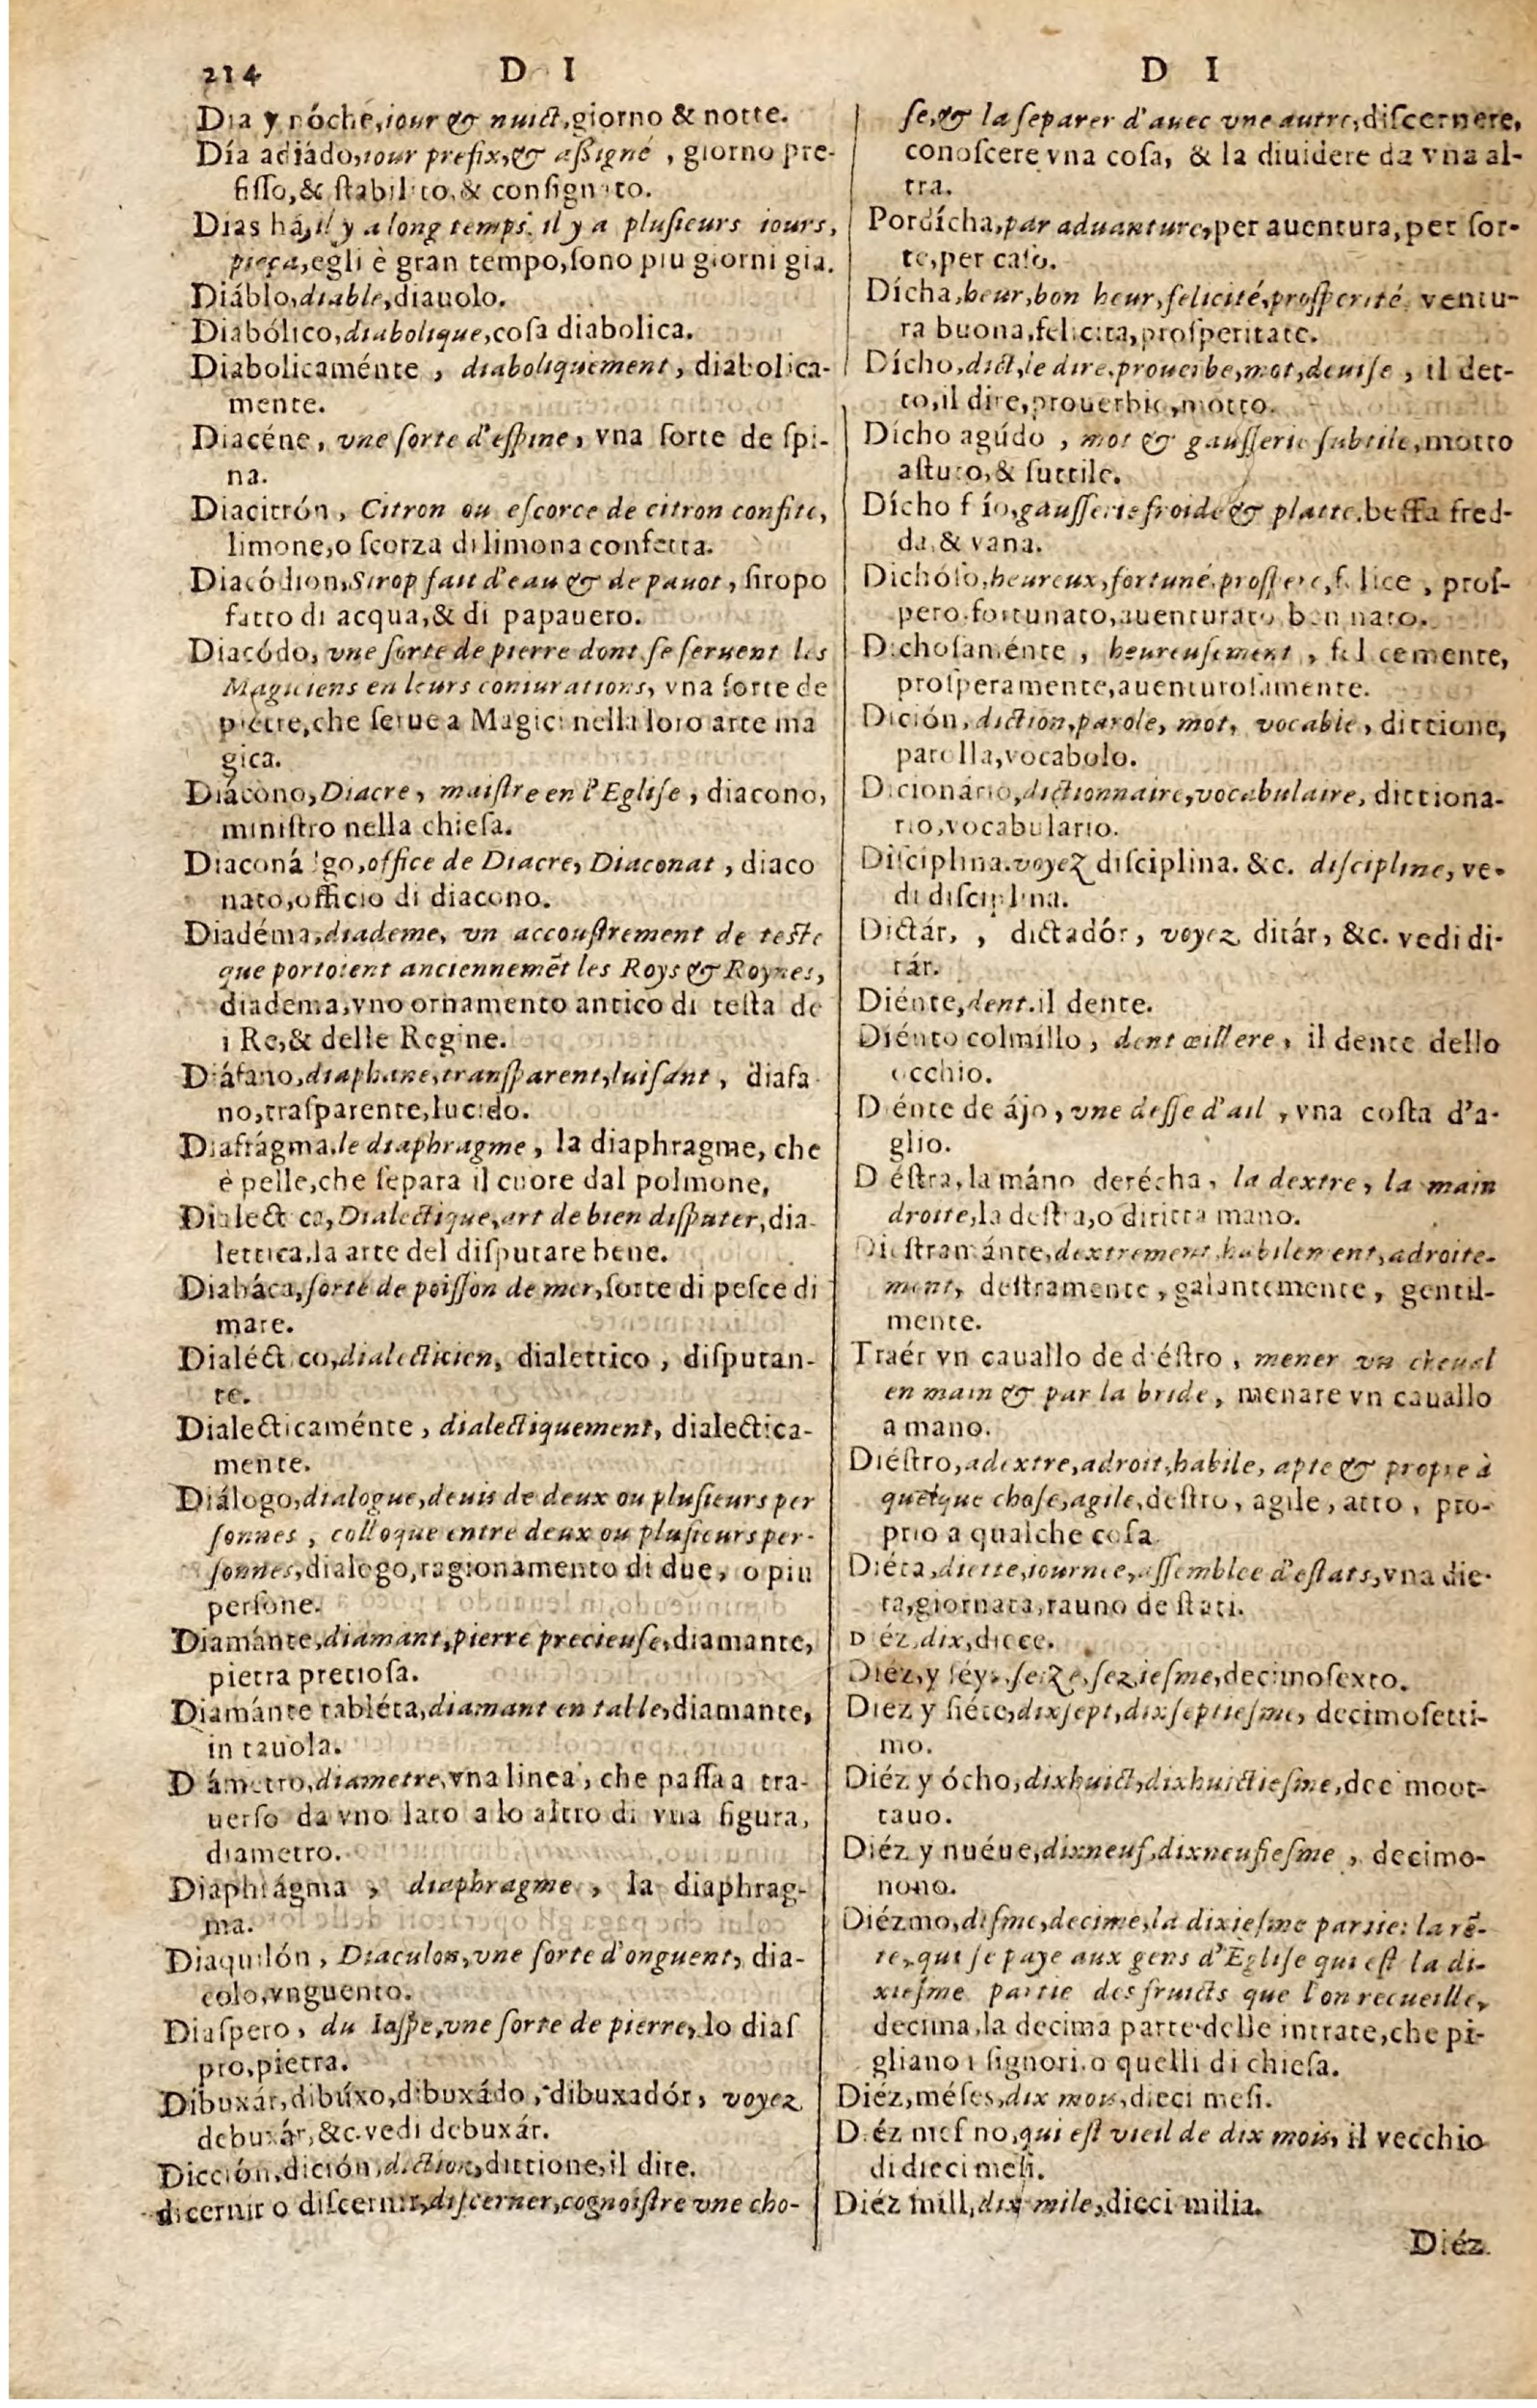 214 D I D I
Dia y nóche, iour & nuict, giorno & notte.
Día adiádo, iour prefix, & aſſigné, giorno pre-
fiſſo, & ſtabilito, & conſignato.
Dias há, il y a long temps. il y a pluſieurs iours,
pieça, egli è gran tempo, ſono piu giorni gia.
Diáblo, diable, diauolo.
Diabólico, diabolique, coſa diabolica.
Diabolicaménte, diaboliquement, diabolica-
mente.
Diacéne, vne ſorte d'eſpine, vna ſorte de ſpi-
na.
Diacitrón, Citron ou eſcorce de citron confite,
limone, o ſcorza di limona confetta.
Diacódion, Sirop fait d'eau & de pauot, ſiropo
fatto di acqua, & di papauero.
Diacódo, vne ſorte de pierre dont ſe ſeruent les
Magiciens en leurs coniurations, vna ſorte de
pietre, che ſerue a Magici nella loro arte ma
gica.
Diácono, Diacre, maiſtre en l'Egliſe, diacono,
miniſtro nella chieſa.
Diaconá go, office de Diacre, Diaconat, diaco
nato, officio di diacono.
Diadéma, diademe, vn accouſtrement de teſte
que portoient anciennemẽt les Roys & Roynes,
diadema, vno ornamento antico di teſta de
i Re, & delle Regine.
Diáfano, diaphane, tranſparent, luiſant, diafa
no, traſparente, lucido.
Diafrágma, le diaphragme, la diaphragme, che
è pelle, che ſepara il cuore dal polmone,
Dialect ca, Dialectique, art de bien diſputer, dia-
lettica, la arte del diſputare bene.
Diabáca, ſorte de poiſſon de mer, ſorte di peſce di
mare.
Dialéct co, dialecticien, dialettico, diſputan-
te.
Dialecticaménte, dialectiquement, dialectica-
mente.
Diálogo, dialogue, deuis de deux ou pluſieurs per
ſonnes, colloque entre deux ou pluſieurs per-
ſonnes, dialogo, ragionamento di due, o piu
perſone.
Diamánte, diamant, pierre precieuſe, diamante,
pietra pretioſa.
Diamánte tabléta, diamant en table, diamante,
in tauola.
D ámetro, diametre, vna linea, che paſſa a tra-
uerſo da vno lato a lo altro di vna figura,
diametro.
Diaphrágma, diaphragme, la diaphrag-
ma.
Diaquilón, Diaculon, vne ſorte d'onguent, dia-
colo, vnguento.
Diaſpero, du Iaſpe, vne ſorte de pierre, lo diaſ
pro, pietra.
Dibuxár, dibúxo, dibuxádo, dibuxadór, voyez
debuxár, &c. vedi debuxár.
Dicción, dición, diction, dittione, il dire.
dicernir o diſcernir, diſcerner, cognoiſtre vne cho-
ſe, & la ſeparer d'auec vne autre, diſcernere,
conoſcere vna coſa, & la diuidere da vna al-
tra.
Pordícha, par aduanture, per auentura, per ſor-
te, per caſo.
Dícha, heur, bon heur, felicité, proſperité, ventu-
ra buona, felicita, proſperitate.
Dícho, dict, le dire, prouerbe, mot, deuiſe, il det-
to, il dire, prouerbio, motto.
Dícho agúdo, mot & gauſſerie ſubtile, motto
aſtuto, & ſuttile.
Dícho f ío, gauſſerie froide & platte, beffa fred-
da, & vana.
Dichóſo, heureux, fortuné, proſpere, f lice, proſ-
pero, fortunato, auenturato, ben nato.
D choſaménte, heureuſement, fel cemente,
proſperamente, auenturoſamente.
Dición, diction, parole, mot, vocable, dittione,
parolla, vocabolo.
D.cionário, dictionnaire, vocabulaire, dittiona-
rio, vocabulario.
Diſciplina. voyez diſciplina. &c. diſcipline, ve-
di diſciplina.
Dictár, , dictadór, voyez ditár, &c. vedi di-
tár.
Diénte, dent. il dente.
Diénto colmillo, dent œillere, il dente dello
occhio.
D énte de ájo, vne deſſe d'ail, vna coſta d'a-
glio.
D éſtra, la máno derécha, la dextre, la main
droite, la deſtra, o diritta mano.
Dieſtramánte, dextrement, habilement, adroite-
ment, deſtramente, galantemente, gentil-
mente.
Traér vn cauallo de d éſtro, mener vn cheual
en main & par la bride, menare vn cauallo
a mano.
Diéſtro, adextre, adroit, habile, apte & propre à
quelque choſe, agile, deſtro, agile, atto, pro-
prio a qualche coſa
Diéta, diette, iournee, aſſemblee d'eſtats, vna die-
ta, giornata, rauno de ſtati.
D éz, dix, diece.
Diéz, y ſéys, ſeize, ſezieſme, decimoſexto.
Diez y ſiéte, dixſept, dixſeptieſme, decimoſetti-
mo.
Diéz y ócho, dixhuict, dixhuictieſme, dec moot-
tauo.
Diéz y nuéue, dixneuf, dixneufieſme, decimo-
nono.
Diézmo, diſme, decime, la dixieſme partie: la rẽ-
te, qui ſe paye aux gens d'Egliſe qui eſt la di-
xieſme partie des fruicts que l'on recueille,
decima, la decima parte delle intrate, che pi-
gliano i ſignori, o quelli di chieſa.
Diéz, méſes, dix mois, dieci meſi.
D.éz meſ no, qui eſt vieil de dix mois, il vecchio
di dieci meſi.
Diéz mill, dix mile, dieci milia.
Diéz